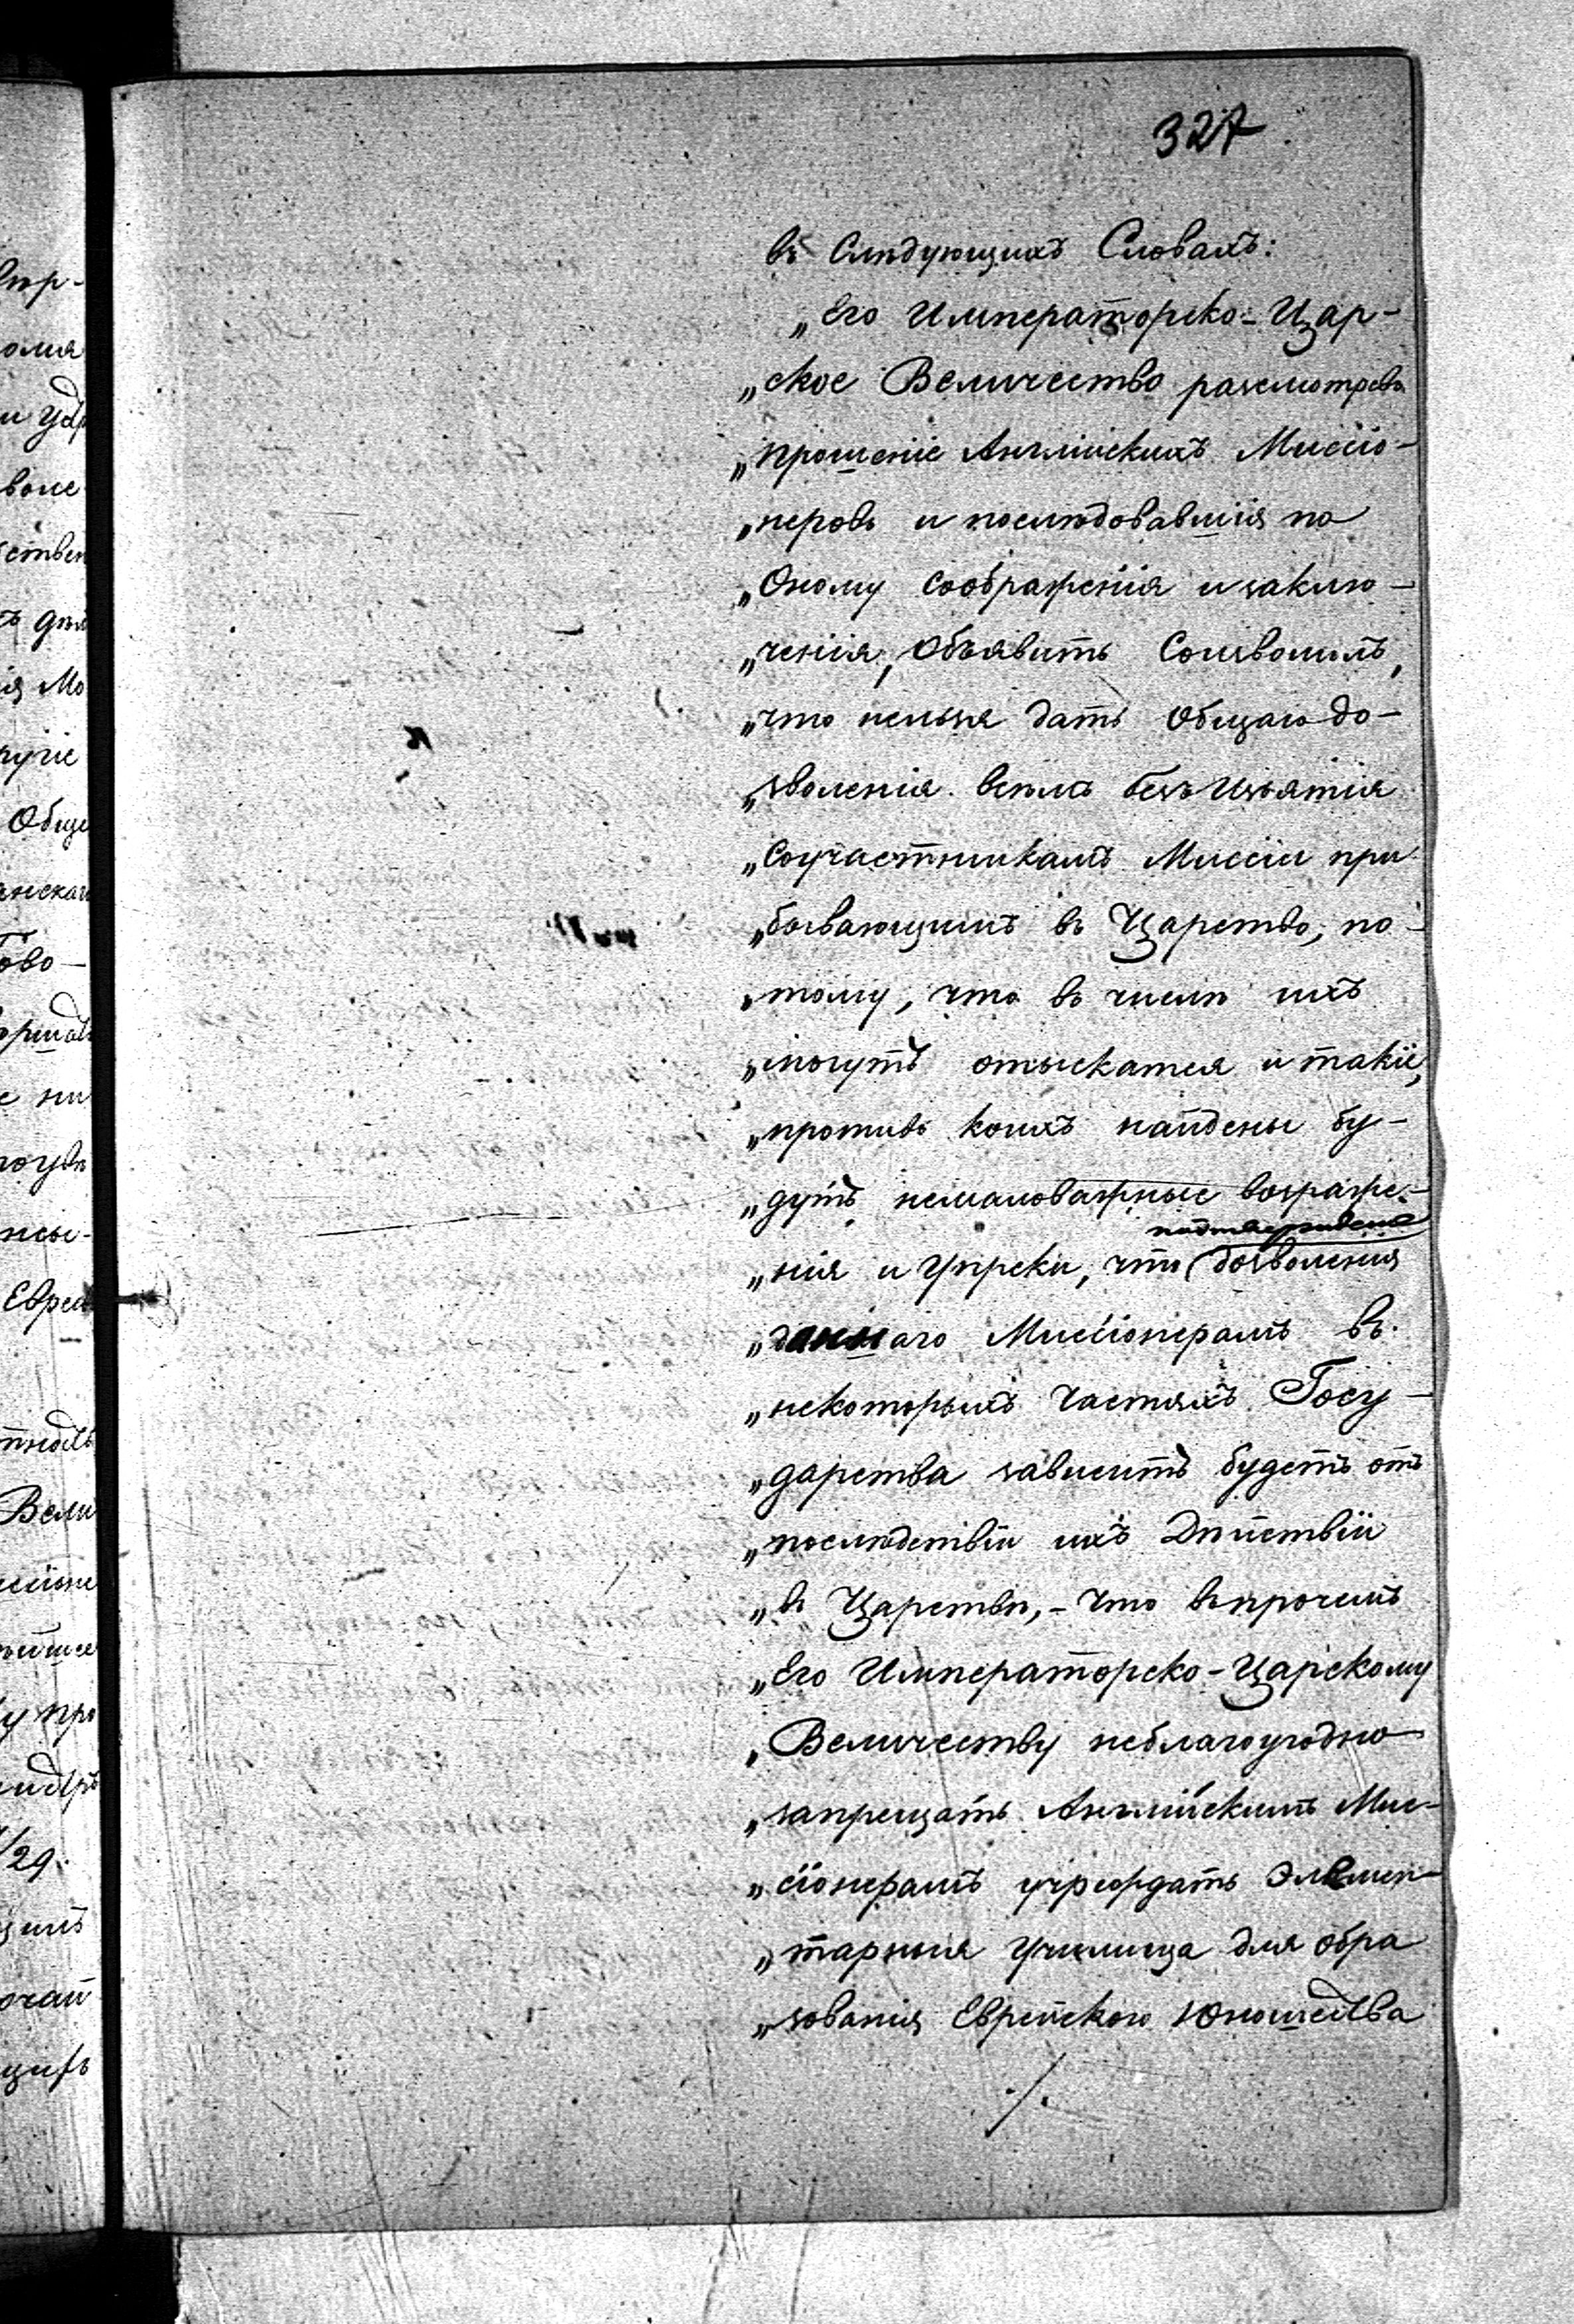 327
въ Слѣдующихъ Словахъ:
„Его Императорско-Цар-
„ское Величество разсмотревъ
„прошеніе Англійскихъ Миссіо-
„неровъ и послѣдовавшія по
„Оному соображенія и заклю-
„ченія, Объявить Соизволилъ,
„что нельзя дать Общаго до-
„зволенія всѣмъ безъ Изъятія
„Соучастникамъ Миссіи при
„бывающимъ въ Царство, по-
„тому, что въ числѣ ихъ
„могутъ отыскатся и такіе,
„противъ коихъ найдены бу-
„дутъ немаловажные возраже-
„нія и Упреки, что подтвержденіе дозволенія
„даннаго Миссіонерамъ въ
„некоторыхъ Частяхъ Госу-
„дарства зависить будетъ отъ
„послѣдствій ихъ Дѣйствій
„въ Царствѣ,- Что впрочемъ
„Его Императорско-Царскому
„Величеству неблагоугодно
„запрещать Англійскимъ Мис-
„сіонерамъ учреждать Элемен-
„тарныя Училища для обра
„зованія Еврейского Юношества
./.
вѣр-
омія
и удр
воле
ствен
ъ дѣл
ія Мо
ругіе
Обще
анскаг
ово-
е ни
Евреа
Вели
у про
/29.
щимъ
очай